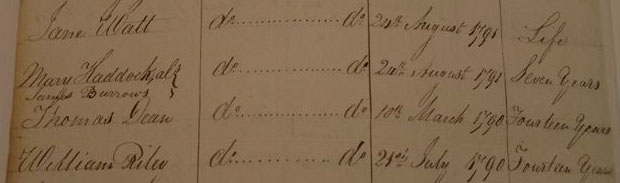 Jane Watt do do 24th August 1791 Life
Mary Haddock, als do do 24th August 1791 Seven Years
James Burrows
Thomas Dean do do 10th March 1790 Fourteen Years
William Riley do do 21st July 1790 Fourteen Years